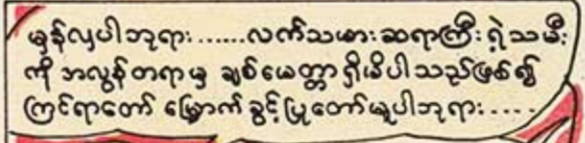 မှန်လှပါဘုရား......လက်သမားဆရာကြီး ရဲ့သမီး
ကို အလွန်တရာမှ ချစ်မေတ္တာ ရှိမိပါသည်ဖြစ်၍
ကြင်ရာတော် မြှောက်ခွင့်ပြုတော်မူပါဘုရား.....